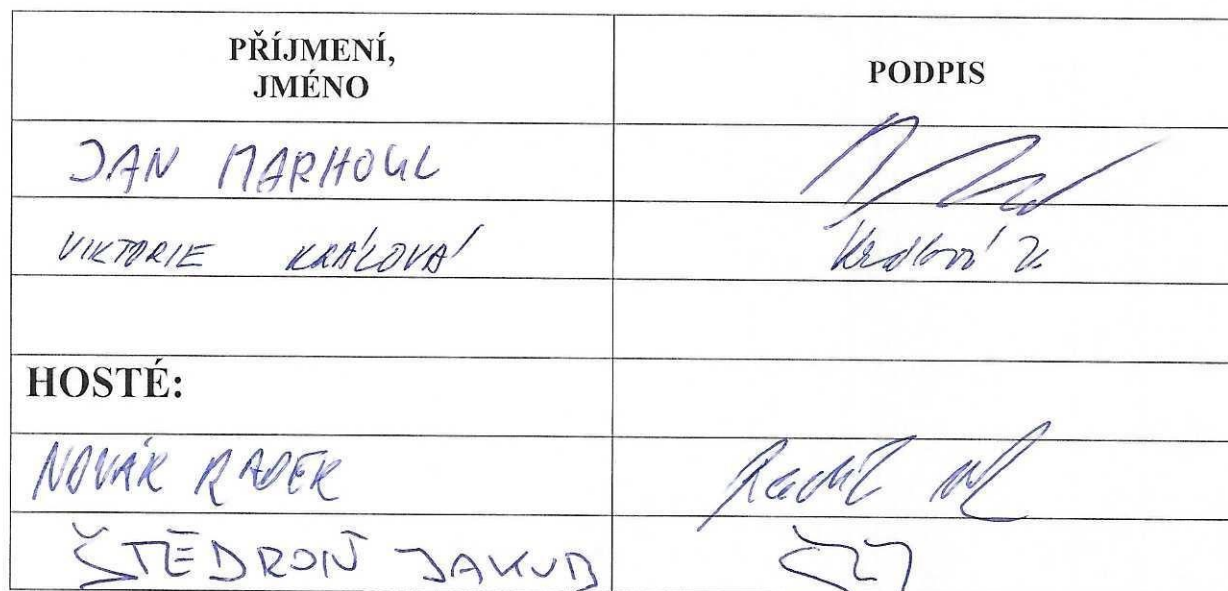 PŘÍJMENÍ,
JMÉNO
PODPIS
JAN MARHOUL
VIKTORIE KRÁLOVÁ
Králová V.
HOSTÉ:
NOVÁK RADEK
ŠTĚDROŇ JAKUB